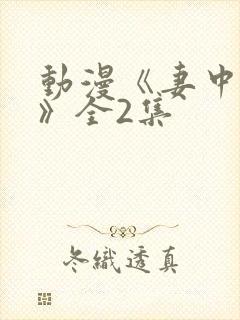 動漫《妻中
》全2集
冬織透真